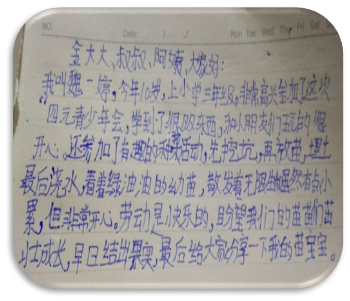 NO. Date. / / Mon Tue Wed Thu Fri Sat
金大大、叔叔、阿姨、大家好:
我叫魏一婷,今年10岁,上小学三年级,非常高兴参加了这次
四元青少年会,学到了很多东西,和小朋友们玩的很
开心。还参加了有趣的种菜活动,先挖坑,再放苗,埋土
最后浇水,看着绿油油的幼苗,散发着无限虽然有点小
累,但非常开心。劳动是快乐的,盼望我们的苗苗们茁
壮成长,早日结出果实,最后给大家分享一下我的苗宝宝。